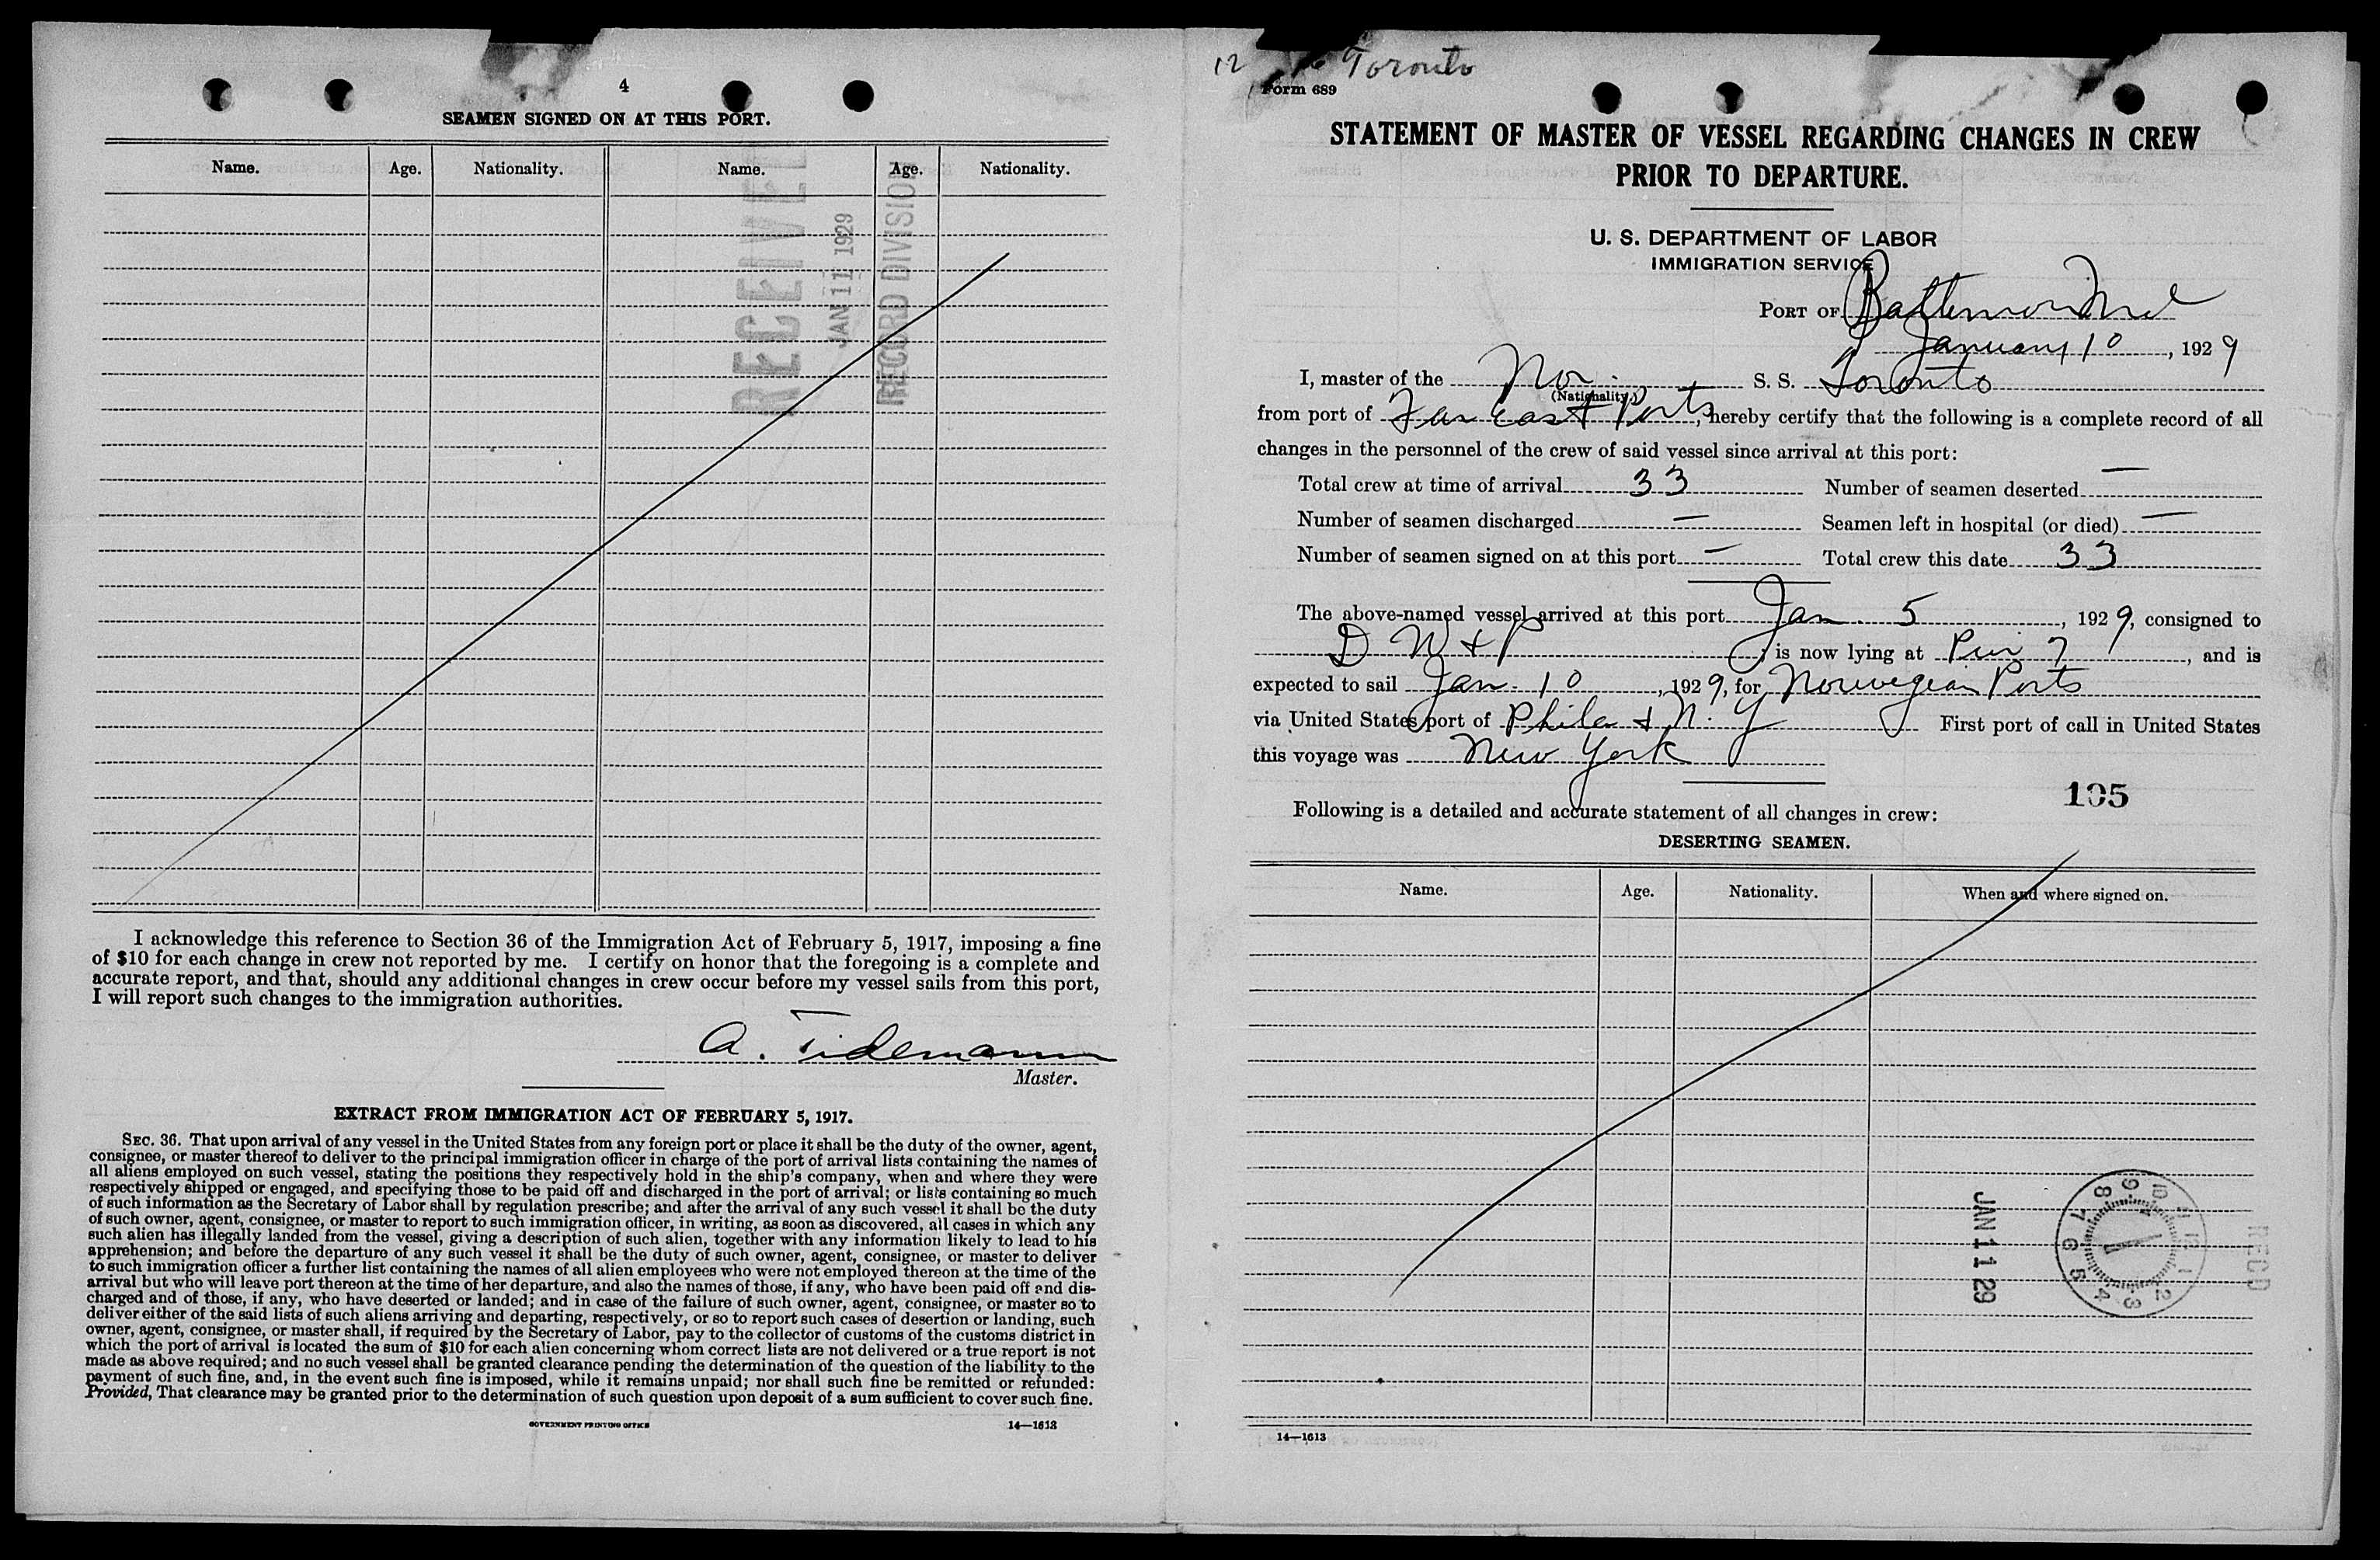 4
SEAMEN SIGNED ON AT THIS PORT.
Name. Age. Nationality. Name. Age. Nationality.
RECEIVED
JAN 11 1929
RECORD DIVISION
I acknowledge this reference to Section 36 of the Immigration Act of February 5, 1917, imposing a fine
of $10 for each change in crew not reported by me. I certify on honor that the foregoing is a complete and
accurate report, and that, should any additional changes in crew occur before my vessel sails from this port,
I will report such changes to the immigration authorities.
A. Tidemann
Master.
EXTRACT FROM IMMIGRATION ACT OF FEBRUARY 5, 1917.
SEC. 36. That upon arrival of any vessel in the United States from any foreign port or place it shall be the duty of the owner, agent,
consignee, or master thereof to deliver to the principal immigration officer in charge of the port of arrival lists containing the names of
all aliens employed on such vessel, stating the positions they respectively hold in the ship's company, when and where they were
respectively shipped or engaged, and specifying those to be paid off and discharged in the port of arrival; or lists containing so much
of such information as the Secretary of Labor shall by regulation prescribe; and after the arrival of any such vessel it shall be the duty
of such owner, agent, consignee, or master to report to such immigration officer, in writing, as soon as discovered, all cases in which any
such alien has illegally landed from the vessel, giving a description of such alien, together with any information likely to lead to his
apprehension; and before the departure of any such vessel it shall be the duty of such owner, agent, consignee, or master to deliver
to such immigration officer a further list containing the names of all alien employees who were not employed thereon at the time of the
arrival but who will leave port thereon at the time of her departure, and also the names of those, if any, who have been paid off and dis-
charged and of those, if any, who have deserted or landed; and in case of the failure of such owner, agent, consignee, or master so to
deliver either of the said lists of such aliens arriving and departing, respectively, or so to report such cases of desertion or landing, such
owner, agent, consignee, or master shall, if required by the Secretary of Labor, pay to the collector of customs of the customs district in
which the port of arrival is located the sum of $10 for each alien concerning whom correct lists are not delivered or a true report is not
made as above required; and no such vessel shall be granted clearance pending the determination of the question of the liability to the
payment of such fine, and, in the event such fine is imposed, while it remains unpaid; nor shall such fine be remitted or refunded:
Provided, That clearance may be granted prior to the determination of such question upon deposit of a sum sufficient to cover such fine.
GOVERNMENT PRINTING OFFICE 14—1613
12 Toronto
Form 689
STATEMENT OF MASTER OF VESSEL REGARDING CHANGES IN CREW
PRIOR TO DEPARTURE.
U. S. DEPARTMENT OF LABOR
IMMIGRATION SERVICE
PORT OF Baltimore Md
January 10, 1929
I, master of the Nor. S. S. Toronto
(Nationality.)
from port of Far East Ports, hereby certify that the following is a complete record of all
changes in the personnel of the crew of said vessel since arrival at this port:
Total crew at time of arrival 33 Number of seamen deserted —
Number of seamen discharged — Seamen left in hospital (or died) —
Number of seamen signed on at this port — Total crew this date 33
The above-named vessel arrived at this port Jan. 5, 1929, consigned to
D W & P; is now lying at Pier 7, and is
expected to sail Jan. 10, 1929, for Norwegian Ports
via United States port of Phila & N. Y First port of call in United States
this voyage was New York
195
Following is a detailed and accurate statement of all changes in crew:
DESERTING SEAMEN.
Name. Age. Nationality. When and where signed on.
JAN 11 29
RECD
14—1613